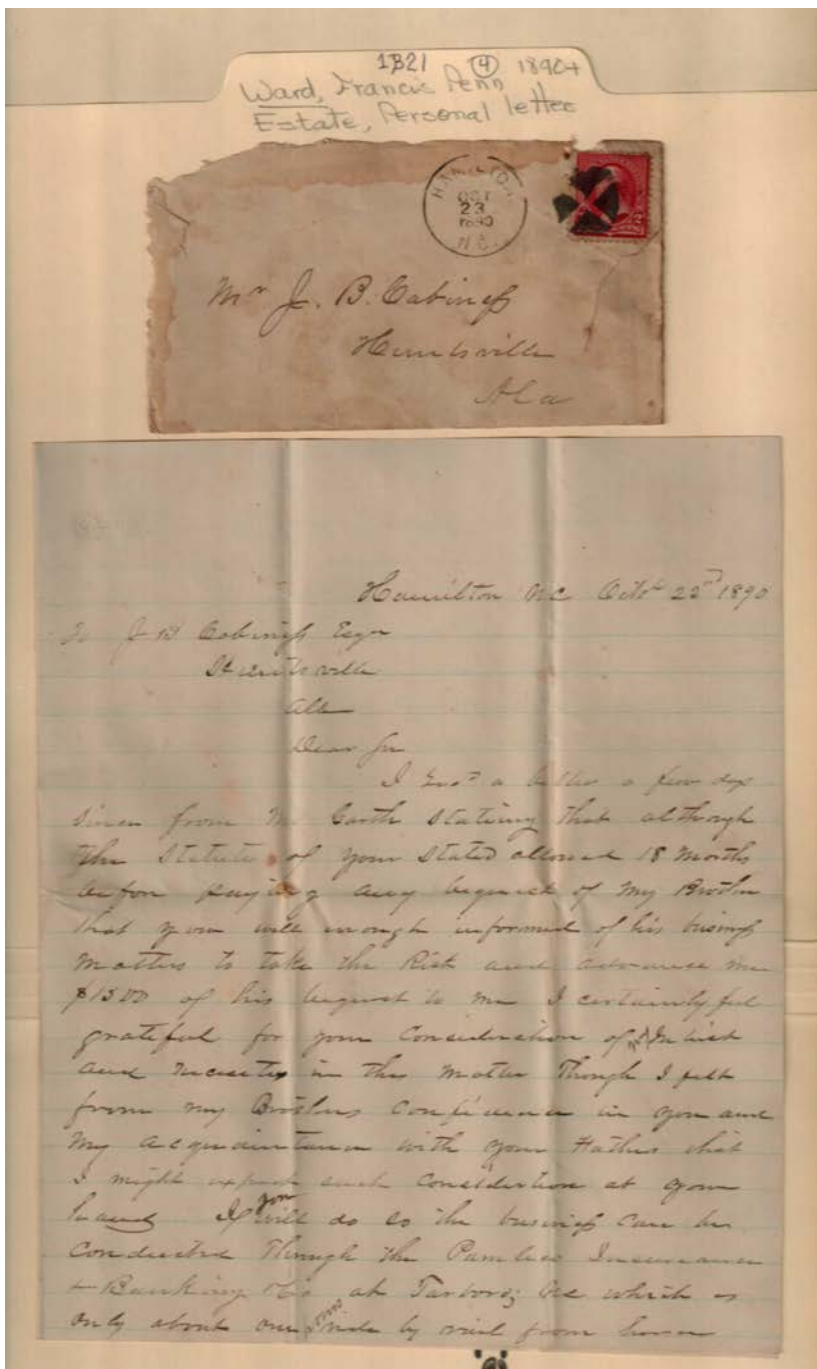 1B21 4 1890+
Ward, Francis Penn
Estate, Personal letter
HAMILTON
OCT
23
1890
N.C.
Mr J. B. Cabiness
Huntsville
Ala
Hamilton NC Octo 22nd 1890
To J B Cabiness Esqr
Huntsville
Ala
Dear Sir
I recd a letter a few days
since from Mr Garth stating that although
the statute of your stated allowed 18 Months
before paying any bequest of my Brother
that you will enough informed of his business
matters to take the Risk and advance me
$1500 of his bequest to me I certainly feel
grateful for your Consideration of my
and necesity in this matter Though I felt
from my Brothers Confidence in you and
My acquaintance with your Father that
I might expect such Consideration at your
hand If you will do so the business can be
Conducted Through the Pamlico Insurance
& Banking Co at Tarboro; NC which is
only about one by rail from home